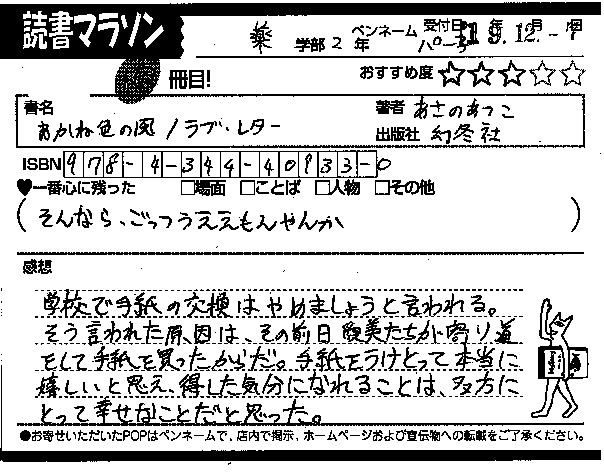 読書マラソン
薬 学部 2 年 ペンネーム パローラ 受付日 19年12月-9日
冊目!
おすすめ度 ☆☆☆☆☆
書名 あかね色の風/ラブ・レター
著者 あさのあつこ
出版社 幻冬舎
ISBN 978-4-344-40933-0
♥一番心に残った □場面 □ことば □人物 □その他
(そんなら、ごっつうええもんやんか)
感想
学校で手紙の交換はやめましょうと言われる。
そう言われた原因は、その前日 愛美たちが寄り道
をして手紙を買ったからだ。手紙をうけとって本当に
嬉しいと思え、得した気分になれることは、双方に
とって幸せなことだと思った。
●お寄せいただいたPOPはペンネームで、店内で掲示、ホームページおよび宣伝物への転載をご了承ください。